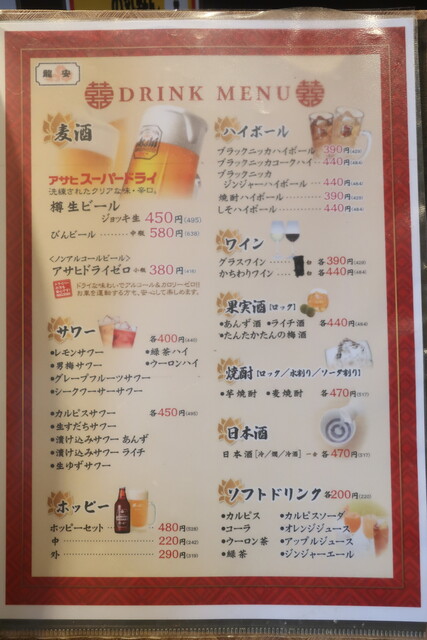 龍安
囍 DRINK MENU 囍
麦酒
アサヒスーパードライ
洗練されたクリアな味・辛口。
樽生ビール
ジョッキ生 450円(495)
びんビール 中瓶 580円(638)
〈ノンアルコールビール〉
アサヒドライゼロ 小瓶 380円(418)
ドライな味わいでアルコール&カロリーゼロ!!
お車を運転する方も、安心して楽しめます。
サワー
各400円(440)
•レモンサワー •緑茶ハイ
•男梅サワー •ウーロンハイ
•グレープフルーツサワー
•シークワーサーサワー
•カルピスサワー 各450円(495)
•生すだちサワー
•漬け込みサワー あんず
•漬け込みサワー ライチ
•生ゆずサワー
ホッピー
ホッピーセット 480円(528)
中 220円(242)
外 290円(319)
ハイボール
ブラックニッカハイボール 390円(429)
ブラックニッカコークハイ 440円(484)
ブラックニッカ
ジンジャーハイボール 440円(484)
焼酎ハイボール 390円(429)
しそハイボール 440円(484)
ワイン
グラスワイン 各390円(429)
かちわりワイン 各440円(484)
果実酒[ロック]
•あんず酒 •ライチ酒 各440円(484)
•たんたかたんの梅酒
焼酎[ロック/水割り/ソーダ割り]
•芋焼酎 •麦焼酎 各470円(517)
日本酒
日本酒[冷/燗/冷酒] 一合 各470円(517)
ソフトドリンク 各200円(220)
•カルピス •カルピスソーダ
•コーラ •オレンジジュース
•ウーロン茶 •アップルジュース
•緑茶 •ジンジャーエール